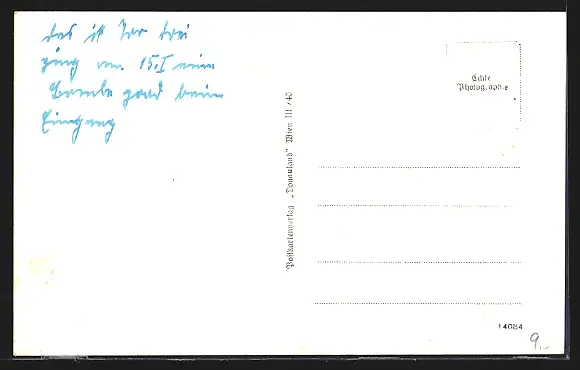 das ist Tor drei
ging am 15.I eine
Bombe grad beim
Eingang
Echte
Photographie
Postkartenverlag „Donauland" Wien III/40
14084
9.-